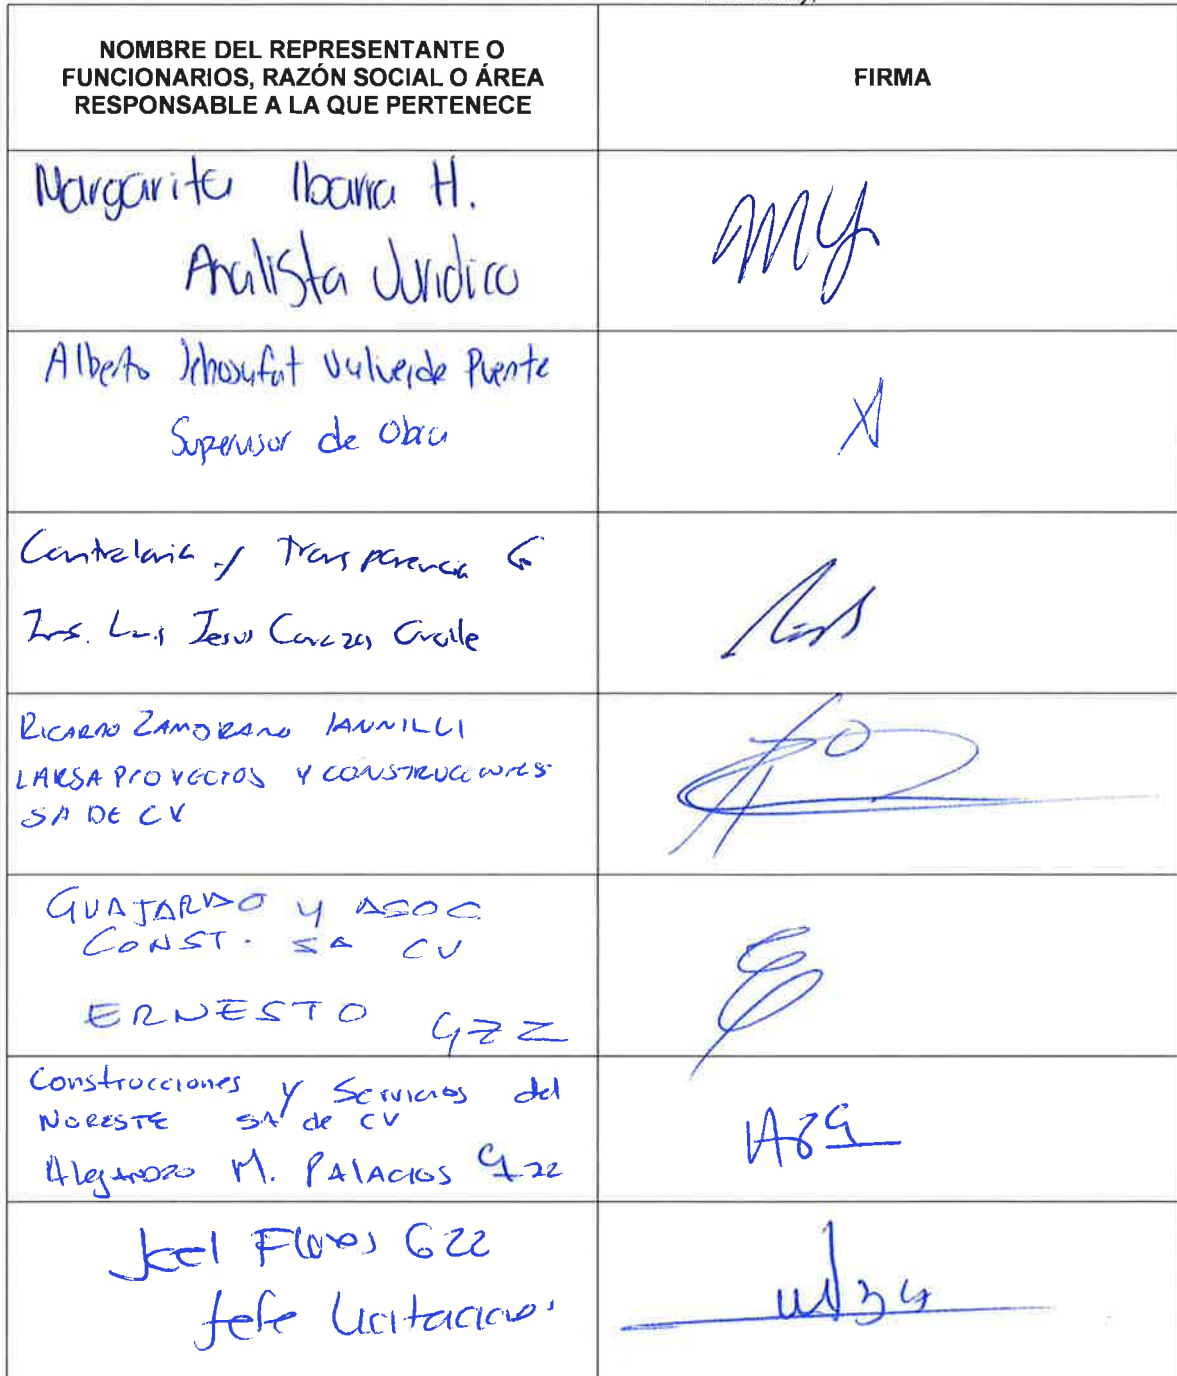 NOMBRE DEL REPRESENTANTE O
FUNCIONARIOS, RAZÓN SOCIAL O ÁREA
RESPONSABLE A LA QUE PERTENECE
FIRMA
Margarita Ibarra H.
Analista Jurídico
Alberto Jehosafat Valverde Puente
Supervisor de Obra
Contraloria y Transparencia
Luis Jesus
RICARDO ZAMORANO IANNILLI
LARSA PROYECTOS Y CONSTRUCCIONES
SA DE CV
GUAJARDO y ASOC
CONST. SA CV
ERNESTO GZZ
Construcciones y Servicios del
NORESTE SA de CV
Alejandro M. PALACIOS Gzz
Joel Flores Gzz
Jefe Licitaciones